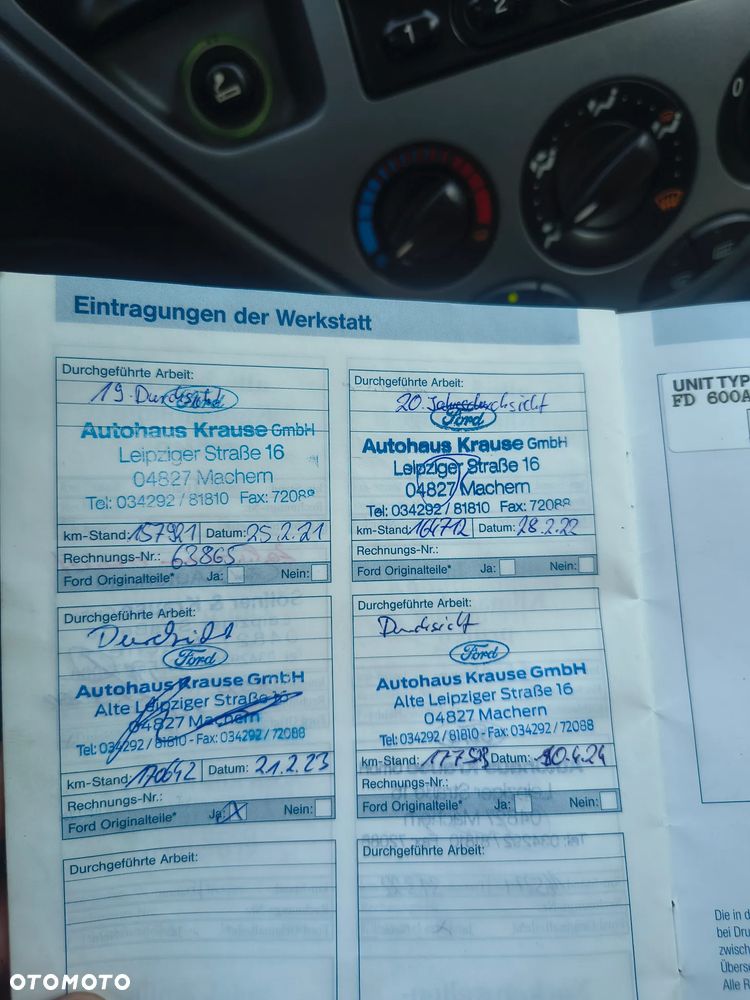 1
2
0
Eintragungen der Werkstatt
Durchgeführte Arbeit:
19. Durchsicht
Ford
Autohaus Krause GmbH
Leipziger Straße 16
04827 Machern
Tel: 034292 / 81810 Fax: 72088
km-Stand: 157921 Datum: 25.2.21
Rechnungs-Nr.: 63865
Ford Originalteile* Ja: Nein:
Durchgeführte Arbeit:
20. Jahresdurchsicht
Ford
Autohaus Krause GmbH
Leipziger Straße 16
04827 Machern
Tel: 034292 / 81810 Fax: 72088
km-Stand: 164712 Datum: 28.2.22
Rechnungs-Nr.:
Ford Originalteile* Ja: Nein:
Durchgeführte Arbeit:
Durchsicht
Ford
Autohaus Krause GmbH
Alte Leipziger Straße 16
04827 Machern
Tel: 034292 / 81810 - Fax: 034292 / 72088
km-Stand: 170642 Datum: 21.2.23
Rechnungs-Nr.:
Ford Originalteile* Ja: X Nein:
Durchgeführte Arbeit:
Durchsicht
Ford
Autohaus Krause GmbH
Alte Leipziger Straße 16
04827 Machern
Tel: 034292 / 81810 - Fax: 034292 / 72088
km-Stand: Datum: 10.4.24
Rechnungs-Nr.:
Ford Originalteile* Ja: Nein:
Durchgeführte Arbeit:
Durchgeführte Arbeit:
UNIT TYP
FD 600A
Die in d
bei Dru
zwisch
Überse
Alle R
OTOMOTO